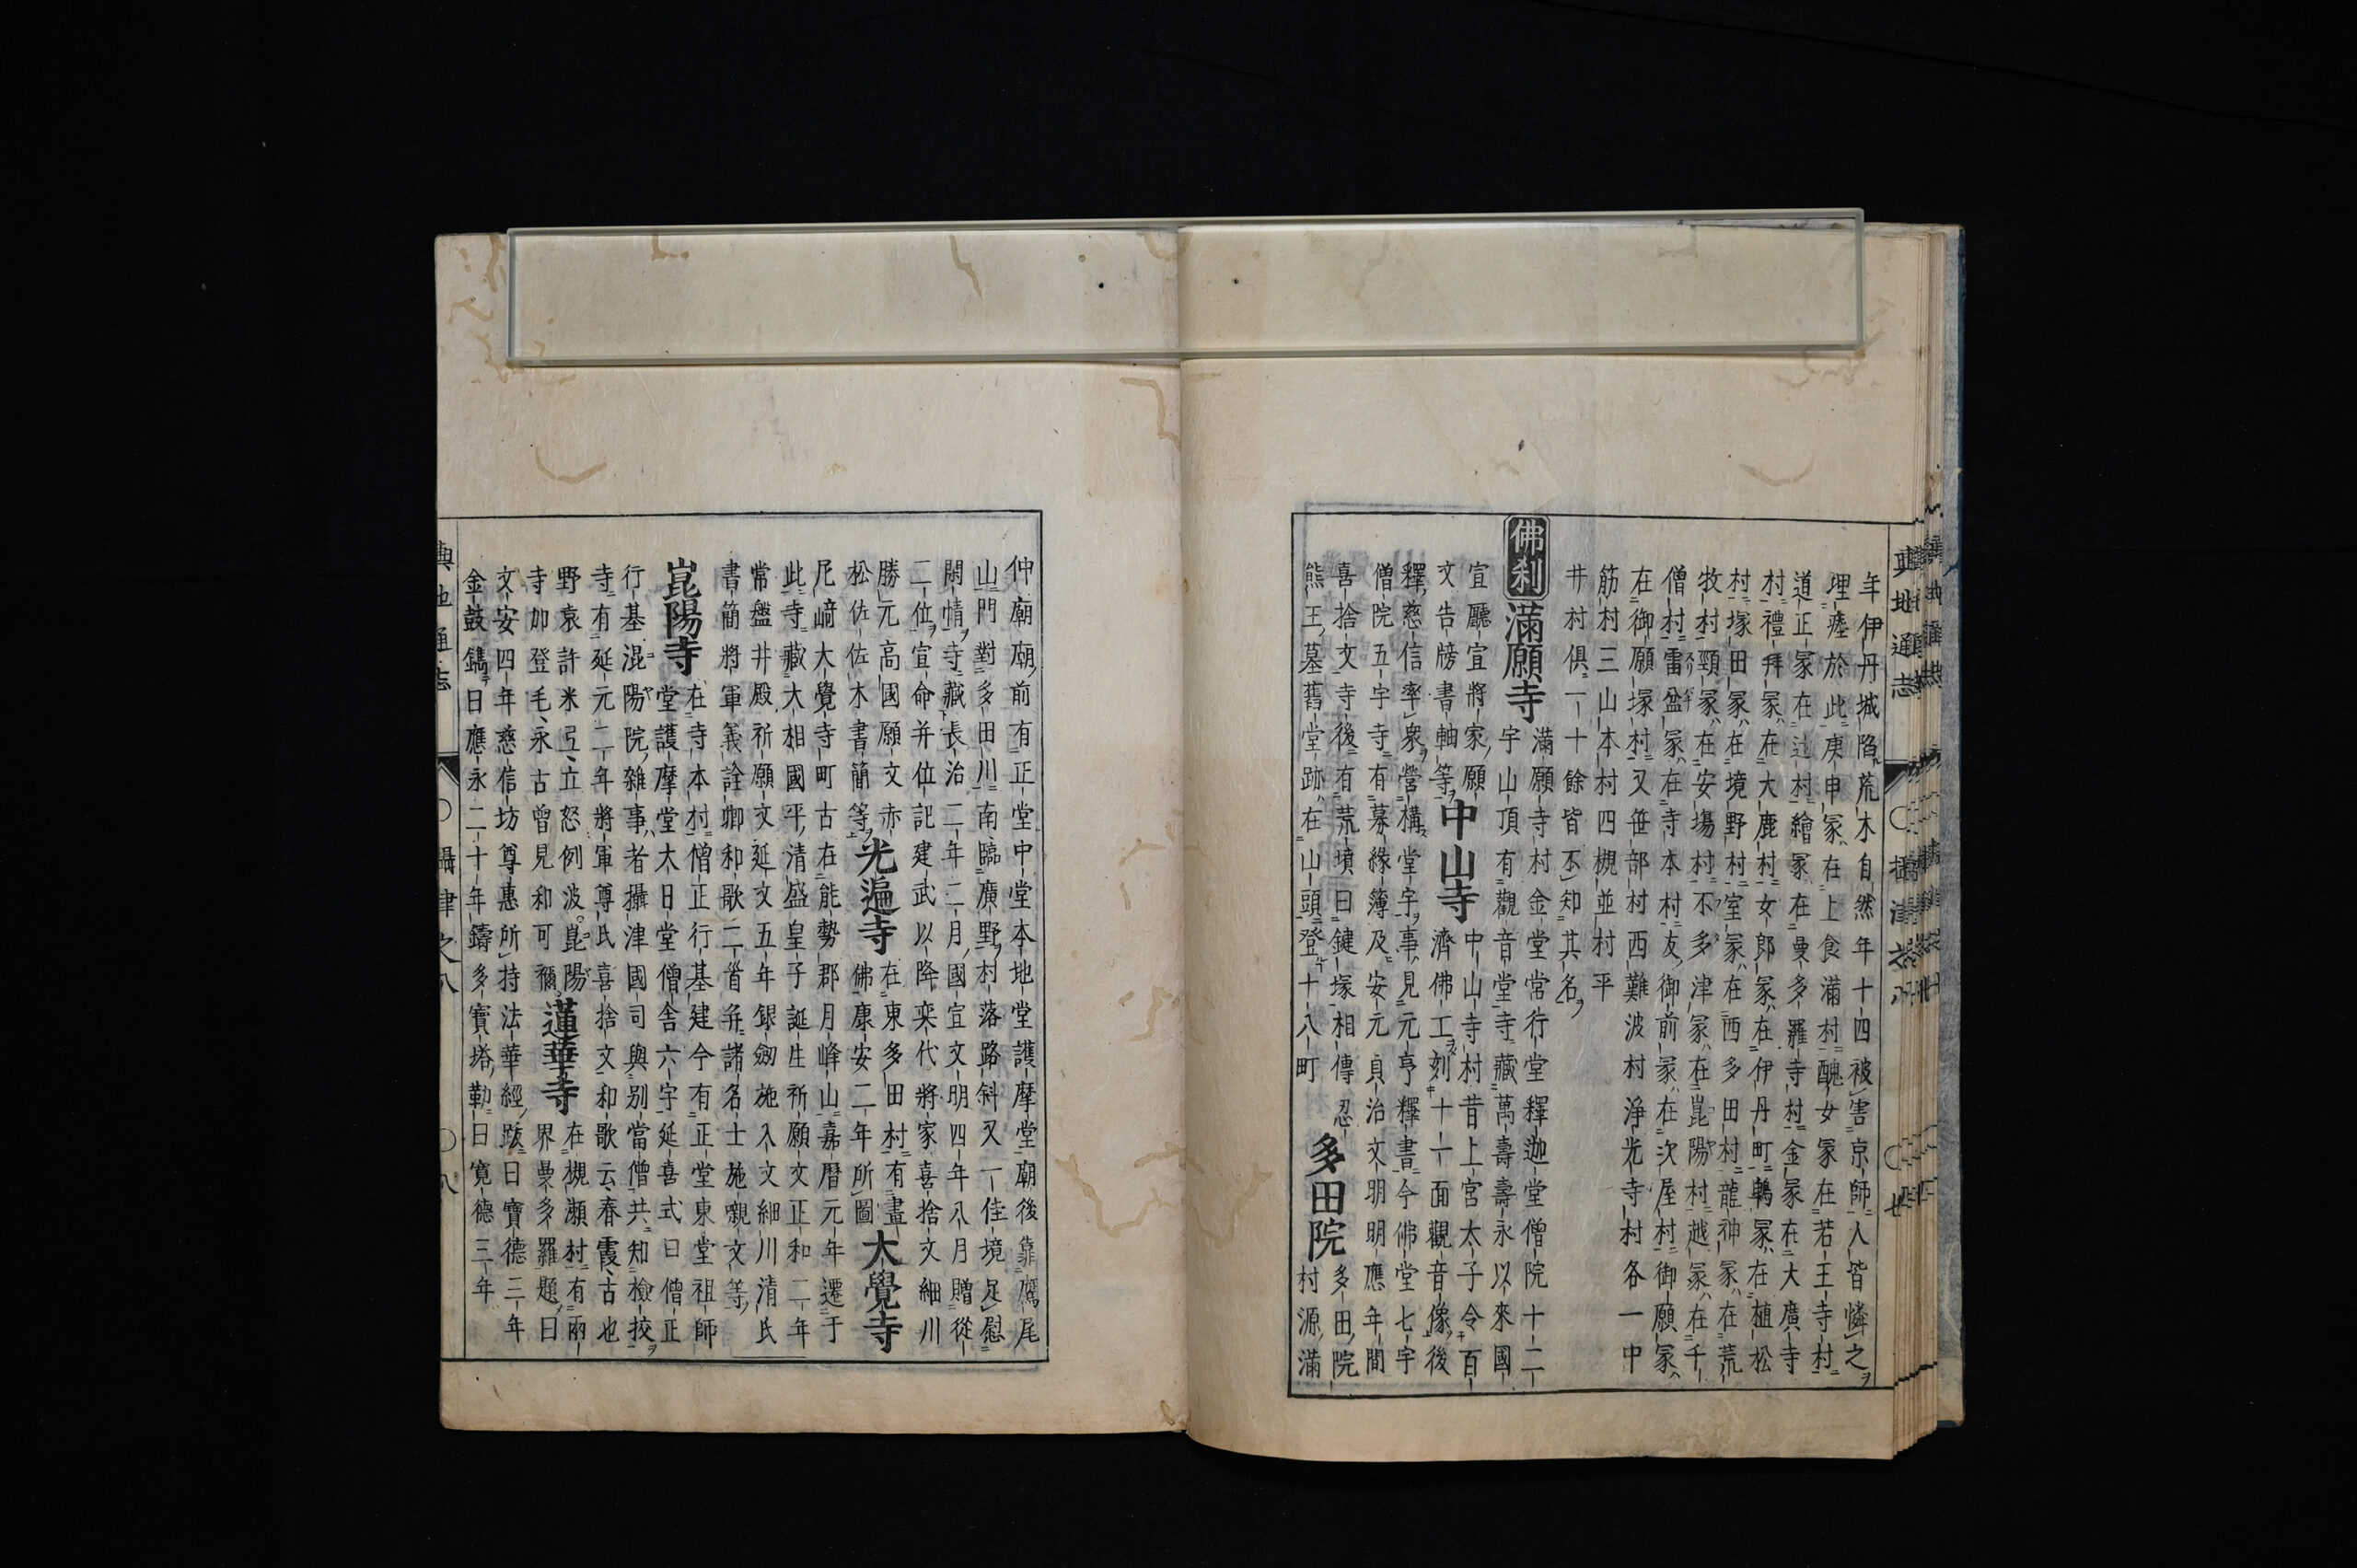 輿地通志 攝津之八
年伊丹城陷荒木自然年十四被害京師人皆憐之
埋瘞於此庚申冢在上食滿村醜女冢在若王寺村
道正冢在辻村繪冢在曼多羅寺村金冢在大廣寺
村禮拜冢在大鹿村女郎冢在伊丹町鵯冢在植松
村塚田冢在境野村室冢在西多田村龍神冢在荒
牧村頸冢在安塲村不多津冢在崑陽村越冢在千
僧村雷盆冢在寺本村友御前冢在次屋村御願冢
在御願塚村又笹部村西難波村淨光寺村各一中
筋村三山本村四槻並村平
井村俱一十餘皆不知其名
佛刹 滿願寺
滿願寺村金堂常行堂釋迦堂僧院十二
宇山頂有觀音堂寺藏萬壽壽永以來國
宣廳宣將家願
文告牓書軸等
中山寺
中山寺村昔上宮太子令百
濟佛工刻十一面觀音像後
釋慈信率衆營構堂宇事見元亨釋書今佛堂七宇
僧院五宇寺有募緣簿及安元貞治文明明應年間
喜捨文寺後有荒墳曰鍵塚相傳忍
熊王墓舊堂跡在山頭登十八町
多田院
多田院
村源滿
仲廟廟前有正堂中堂本地堂護摩堂廟後靠鷹尾
山門對多田川南臨廣野村落路斜又一佳境足慰
閑情寺藏長治二年二月國宣文明四年八月贈從
二位宣命并位記建武以降奕代將家喜捨文細川
勝元高國願文赤
松佐佐木書簡等
光遍寺
在東多田村有畫
佛康安二年所圖
大覺寺
尼﨑大覺寺町古在能勢郡月峰山嘉曆元年遷于
此寺藏大相國平清盛皇子誕生祈願文正和二年
常盤井殿祈願文延文五年銀劒施入文細川清氏
書簡將軍義詮卿和歌二首并諸名士施嚫文等
崑陽寺
在寺本村僧正行基建今有正堂東堂祖師
堂護摩堂大日堂僧舍六宇延喜式曰僧正
行基混陽院雜事者攝津國司與別當僧共知檢挍
寺有延元二年將軍尊氏喜捨文和歌云春霞古也
野袁許米弖立怒例波崑陽
寺加登毛永古曾見和可禰
蓮華寺
在槻瀬村有兩
界曼多羅題曰
文安四年慈信坊尊惠所持法華經跋曰寶德三年
金鼓鐫曰應永二十年鑄多寶塔勒曰寬德三年
輿地通志 攝津之八 八